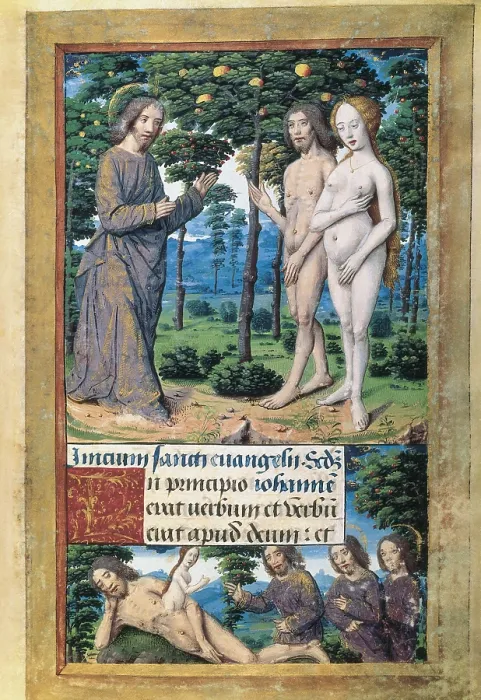 Inicium sancti euangelij. Scd̄ʒ
In principio iohannē
erat uerbum et verbū
erat apud deum : et